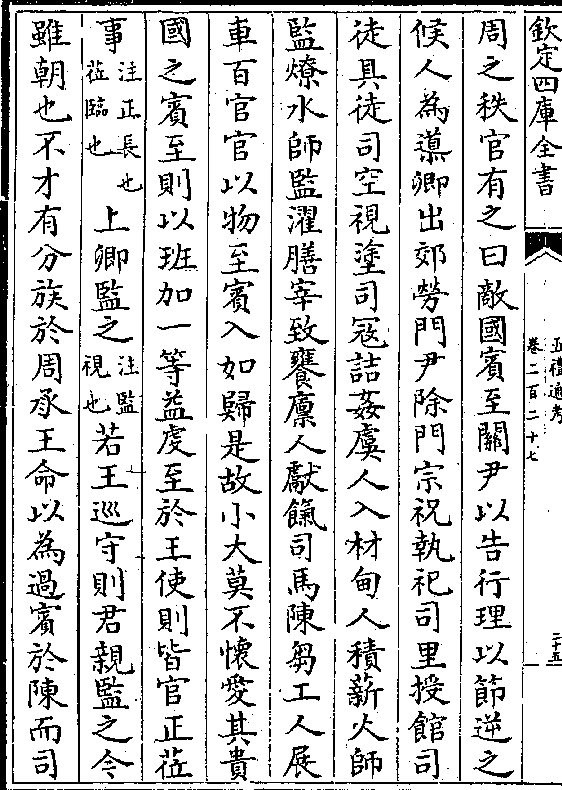 欽定四庫全書
五禮通考
卷二百二十七
二十五
周之秩官有之曰敵國賓至關尹以告行理以節逆之
候人為導卿出郊勞門尹除門宗祝執祀司里授館司
徒具徒司空視塗司冦詰姦虞人入材甸人積薪火師
監燎水師監濯膳宰致饔廪人獻餼司馬陳芻工人展
車百官官以物至賓入如歸是故小大莫不懷愛其貴
國之賓至則以班加一等益䖍至於王使則皆官正莅
事注正長也莅臨也上卿監之注監視也若王巡守則君親監之今
雖朝也不才有分族於周承王命以為過賓於陳而司